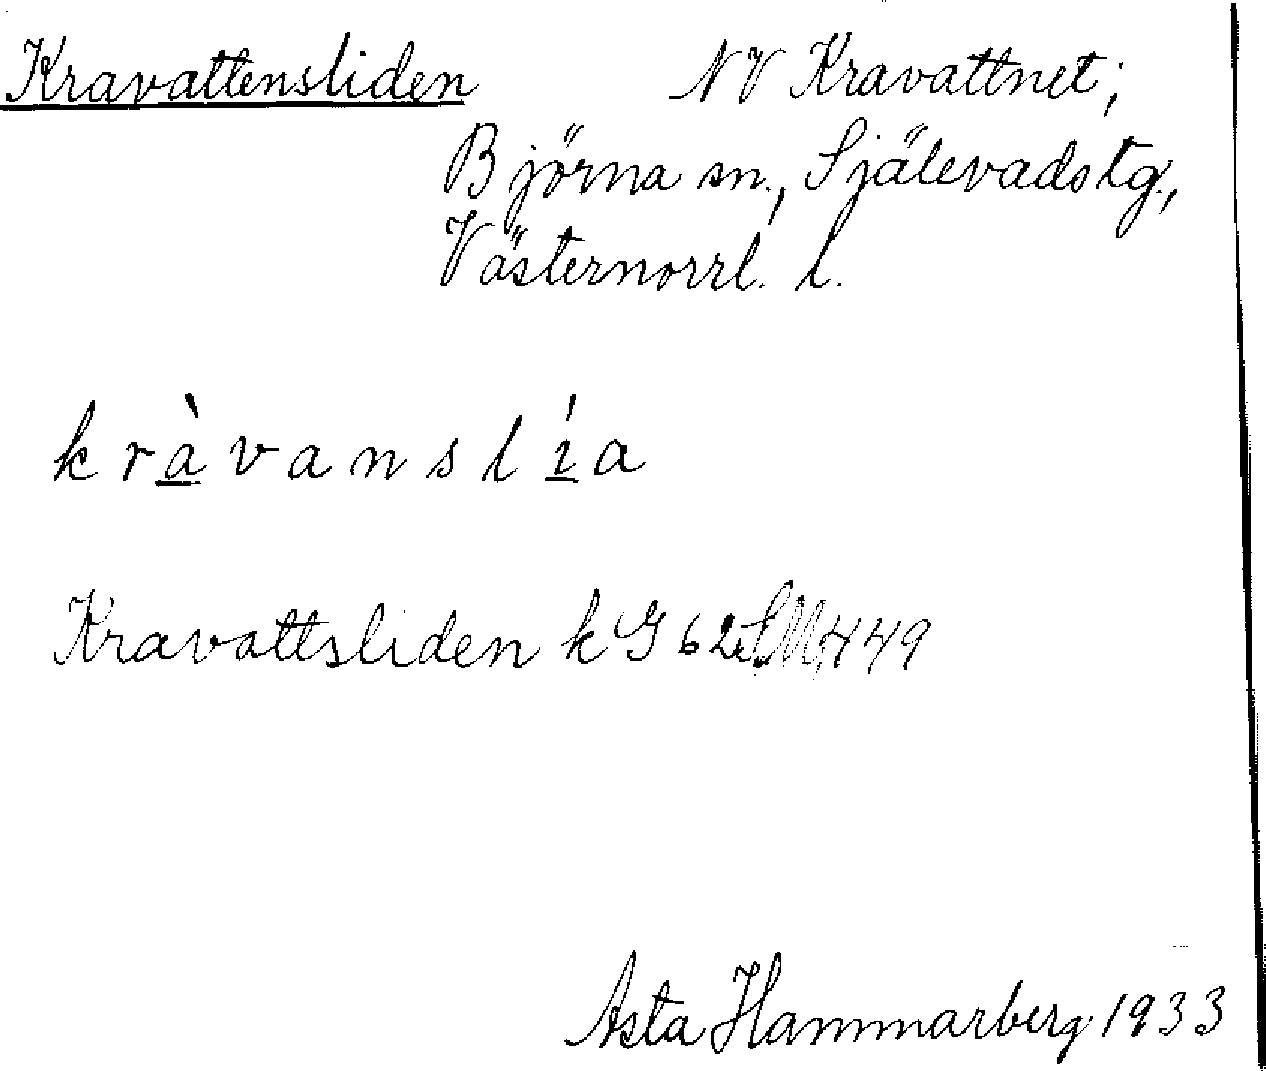 Kravattensliden NV Kravattnet;
Björna sn., Själevads tg.,
Västernorrl. l.
kràvanslía
Kravattsliden k G 62 449
Asta Hammarberg 1933